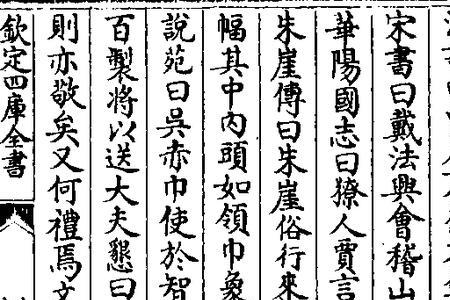 宋書曰戴法興會稽山
華陽國志曰獠人賈言
朱崖傳曰朱崖俗行來
幅其中內頭如領巾象
說苑曰吳赤巾使於智
百製將以送大夫懇曰
則亦敬矣又何禮焉文
欽定四庫全書